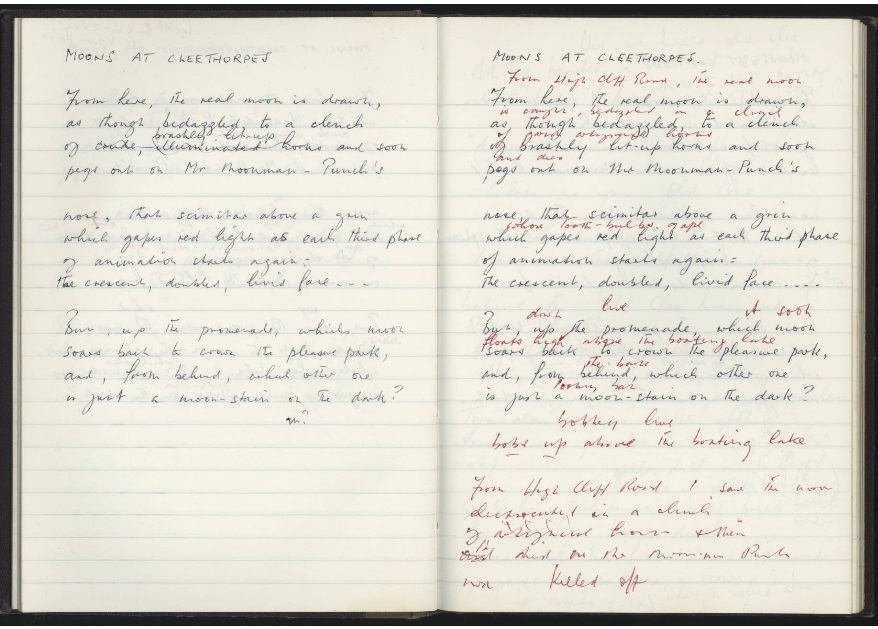 MOONS AT CLEETHORPES
From here, the real moon is drawn,
as though bedazzled, to a clench
brashly lit-up
of crude, illuminated horns and soon
pegs out on Mr Moonman-Punch's
nose, that scimitar above a grin
which gapes red light as each third phase
of animation starts again:
the crescent, doubled, livid face....
But, up the promenade, which moon
soars back to crown the pleasure park,
and, from behind, which other one
is just a moon-stain on the dark?
on?
MOONS AT CLEETHORPES.
From High Cliff Road, the real moon
From here, the real moon is drawn,
is caught, bedazzled in a
as though bedazzled, to a clench
of horns
of brashly lit-up horns and soon
and dies
pegs out on Mr Moonman-Punch's
nose, that scimitar above a grin
whose tooth-bulbs gape
which gapes red light as each third phase
of animation starts again:
the crescent, doubled, livid face....
down live
But, up the promenade, which moon
floats high above the boating lake
soars back to crown the pleasure park,
the
and, from behind, which other one
is just a moon-stain on the dark?
live
bobs up above the boating lake
From High Cliff Road I saw the moon
in a clench
of horns & then
died on the
nose Killed off